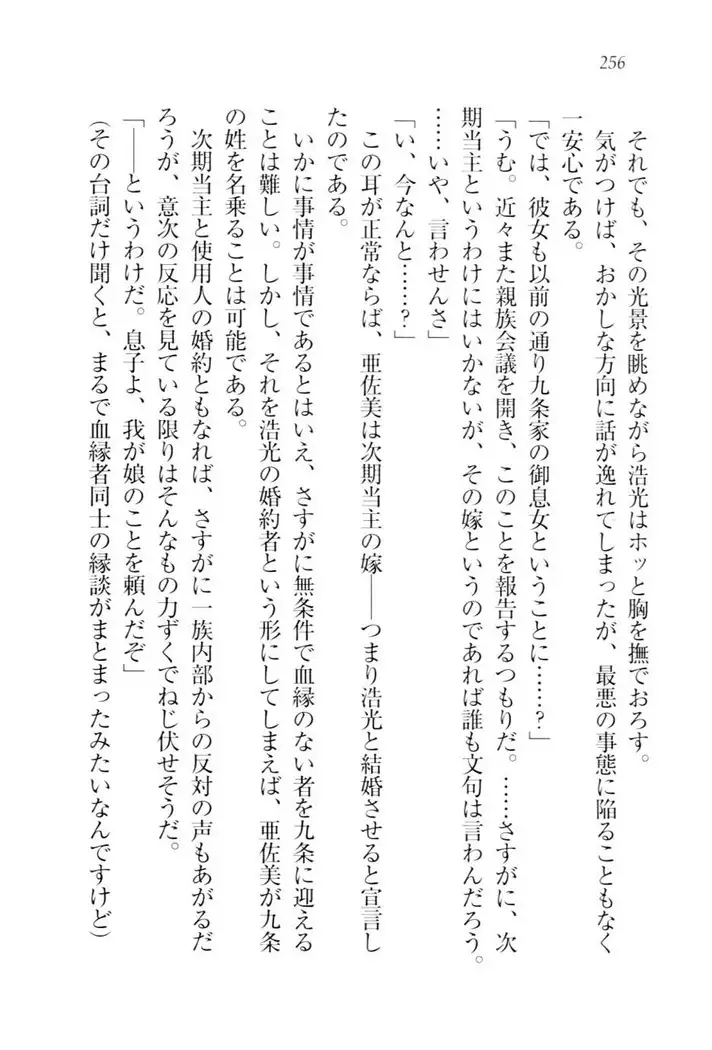 256
それでも、その光景を眺めながら浩光はホッと胸を撫でおろす。
気がつけば、おかしな方向に話が逸れてしまったが、最悪の事態に陥ることもなく
一安心である。
「では、彼女も以前の通り九条家の御息女ということに……？」
「うむ。近々また親族会議を開き、このことを報告するつもりだ。……さすがに、次
期当主というわけにはいかないが、その嫁というのであれば誰も文句は言わんだろう。
……いや、言わせんさ」
「い、今なんと……？」
この耳が正常ならば、亜佐美は次期当主の嫁――つまり浩光と結婚させると宣言し
たのである。
いかに事情が事情であるとはいえ、さすがに無条件で血縁のない者を九条に迎える
ことは難しい。しかし、それを浩光の婚約者という形にしてしまえば、亜佐美が九条
の姓を名乗ることは可能である。
次期当主と使用人の婚約ともなれば、さすがに一族内部からの反対の声もあがるだ
ろうが、意次の反応を見ている限りはそんなもの力ずくでねじ伏せそうだ。
「――というわけだ。息子よ、我が娘のことを頼んだぞ」
（その台詞だけ聞くと、まるで血縁者同士の縁談がまとまったみたいなんですけど）